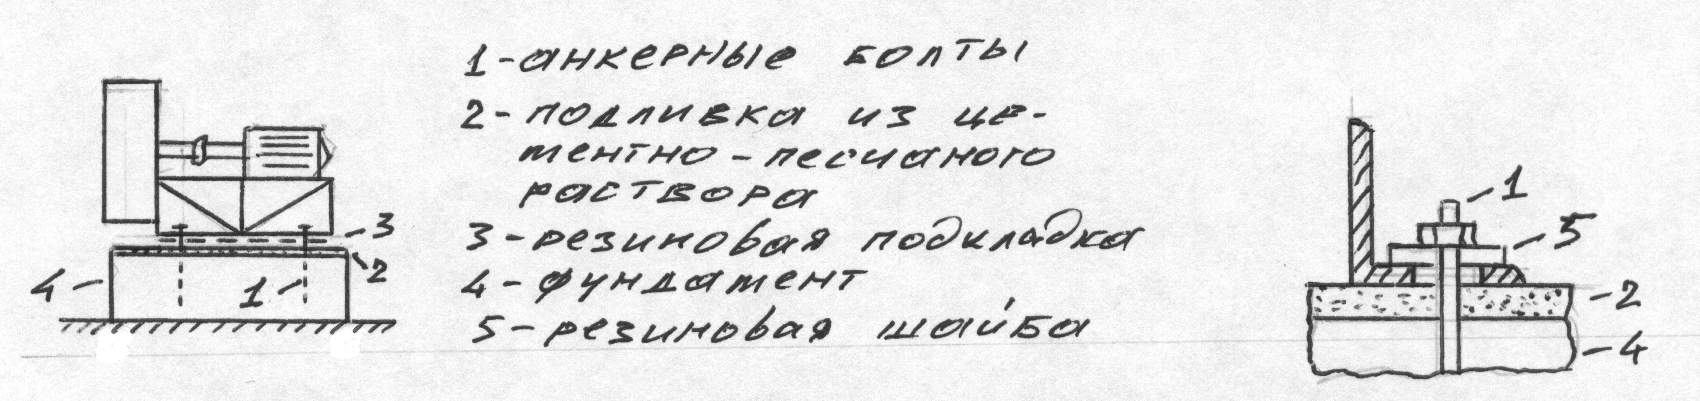 1 - анкерные болты
2 - подливка из це-
ментно - песчаного
раствора
3 - резиновая подкладка
4 - фундамент
5 - резиновая шайба
3
2
4
1
1
5
2
4